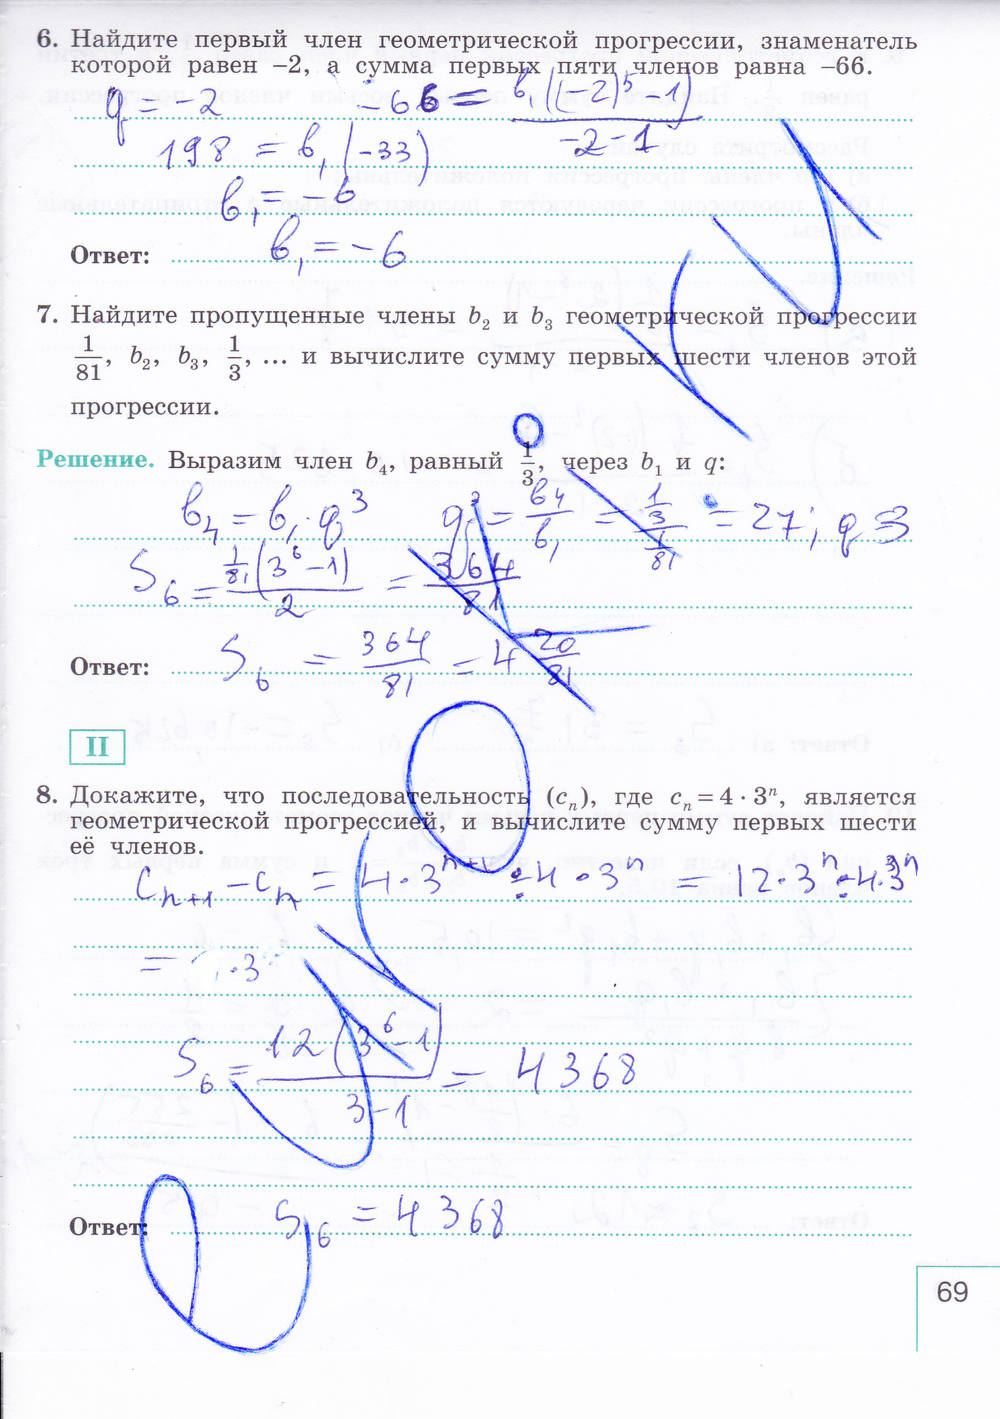 6. Найдите первый член геометрической прогрессии, знаменатель
которой равен –2, а сумма первых пяти членов равна –66.
q = -2 -66 = в₁((-2)⁵-1)/(-2-1)
198 = в₁(-33)
в₁ = -6
Ответ: в₁ = -6
7. Найдите пропущенные члены b₂ и b₃ геометрической прогрессии
1/81, b₂, b₃, 1/3, ... и вычислите сумму первых шести членов этой
прогрессии.
Решение. Выразим член b₄, равный 1/3, через b₁ и q:
в₄ = в₁·q³ q³ = в₄/в₁ = (1/3)/(1/81) = 27; q 3
S₆ = 1/81(3⁶-1)/2 = 364/81
Ответ: S₆ = 364/81 = 4 20/81
II
8. Докажите, что последовательность (cₙ), где cₙ = 4 · 3ⁿ, является
геометрической прогрессией, и вычислите сумму первых шести
её членов.
Cₙ₊₁ – Cₙ = 4·3ⁿ⁺¹ ÷ 4·3ⁿ = 12·3ⁿ ÷ 4·3ⁿ
= ·3
S₆ = 12(3⁶-1)/(3-1) = 4368
Ответ: S₆ = 4368
69